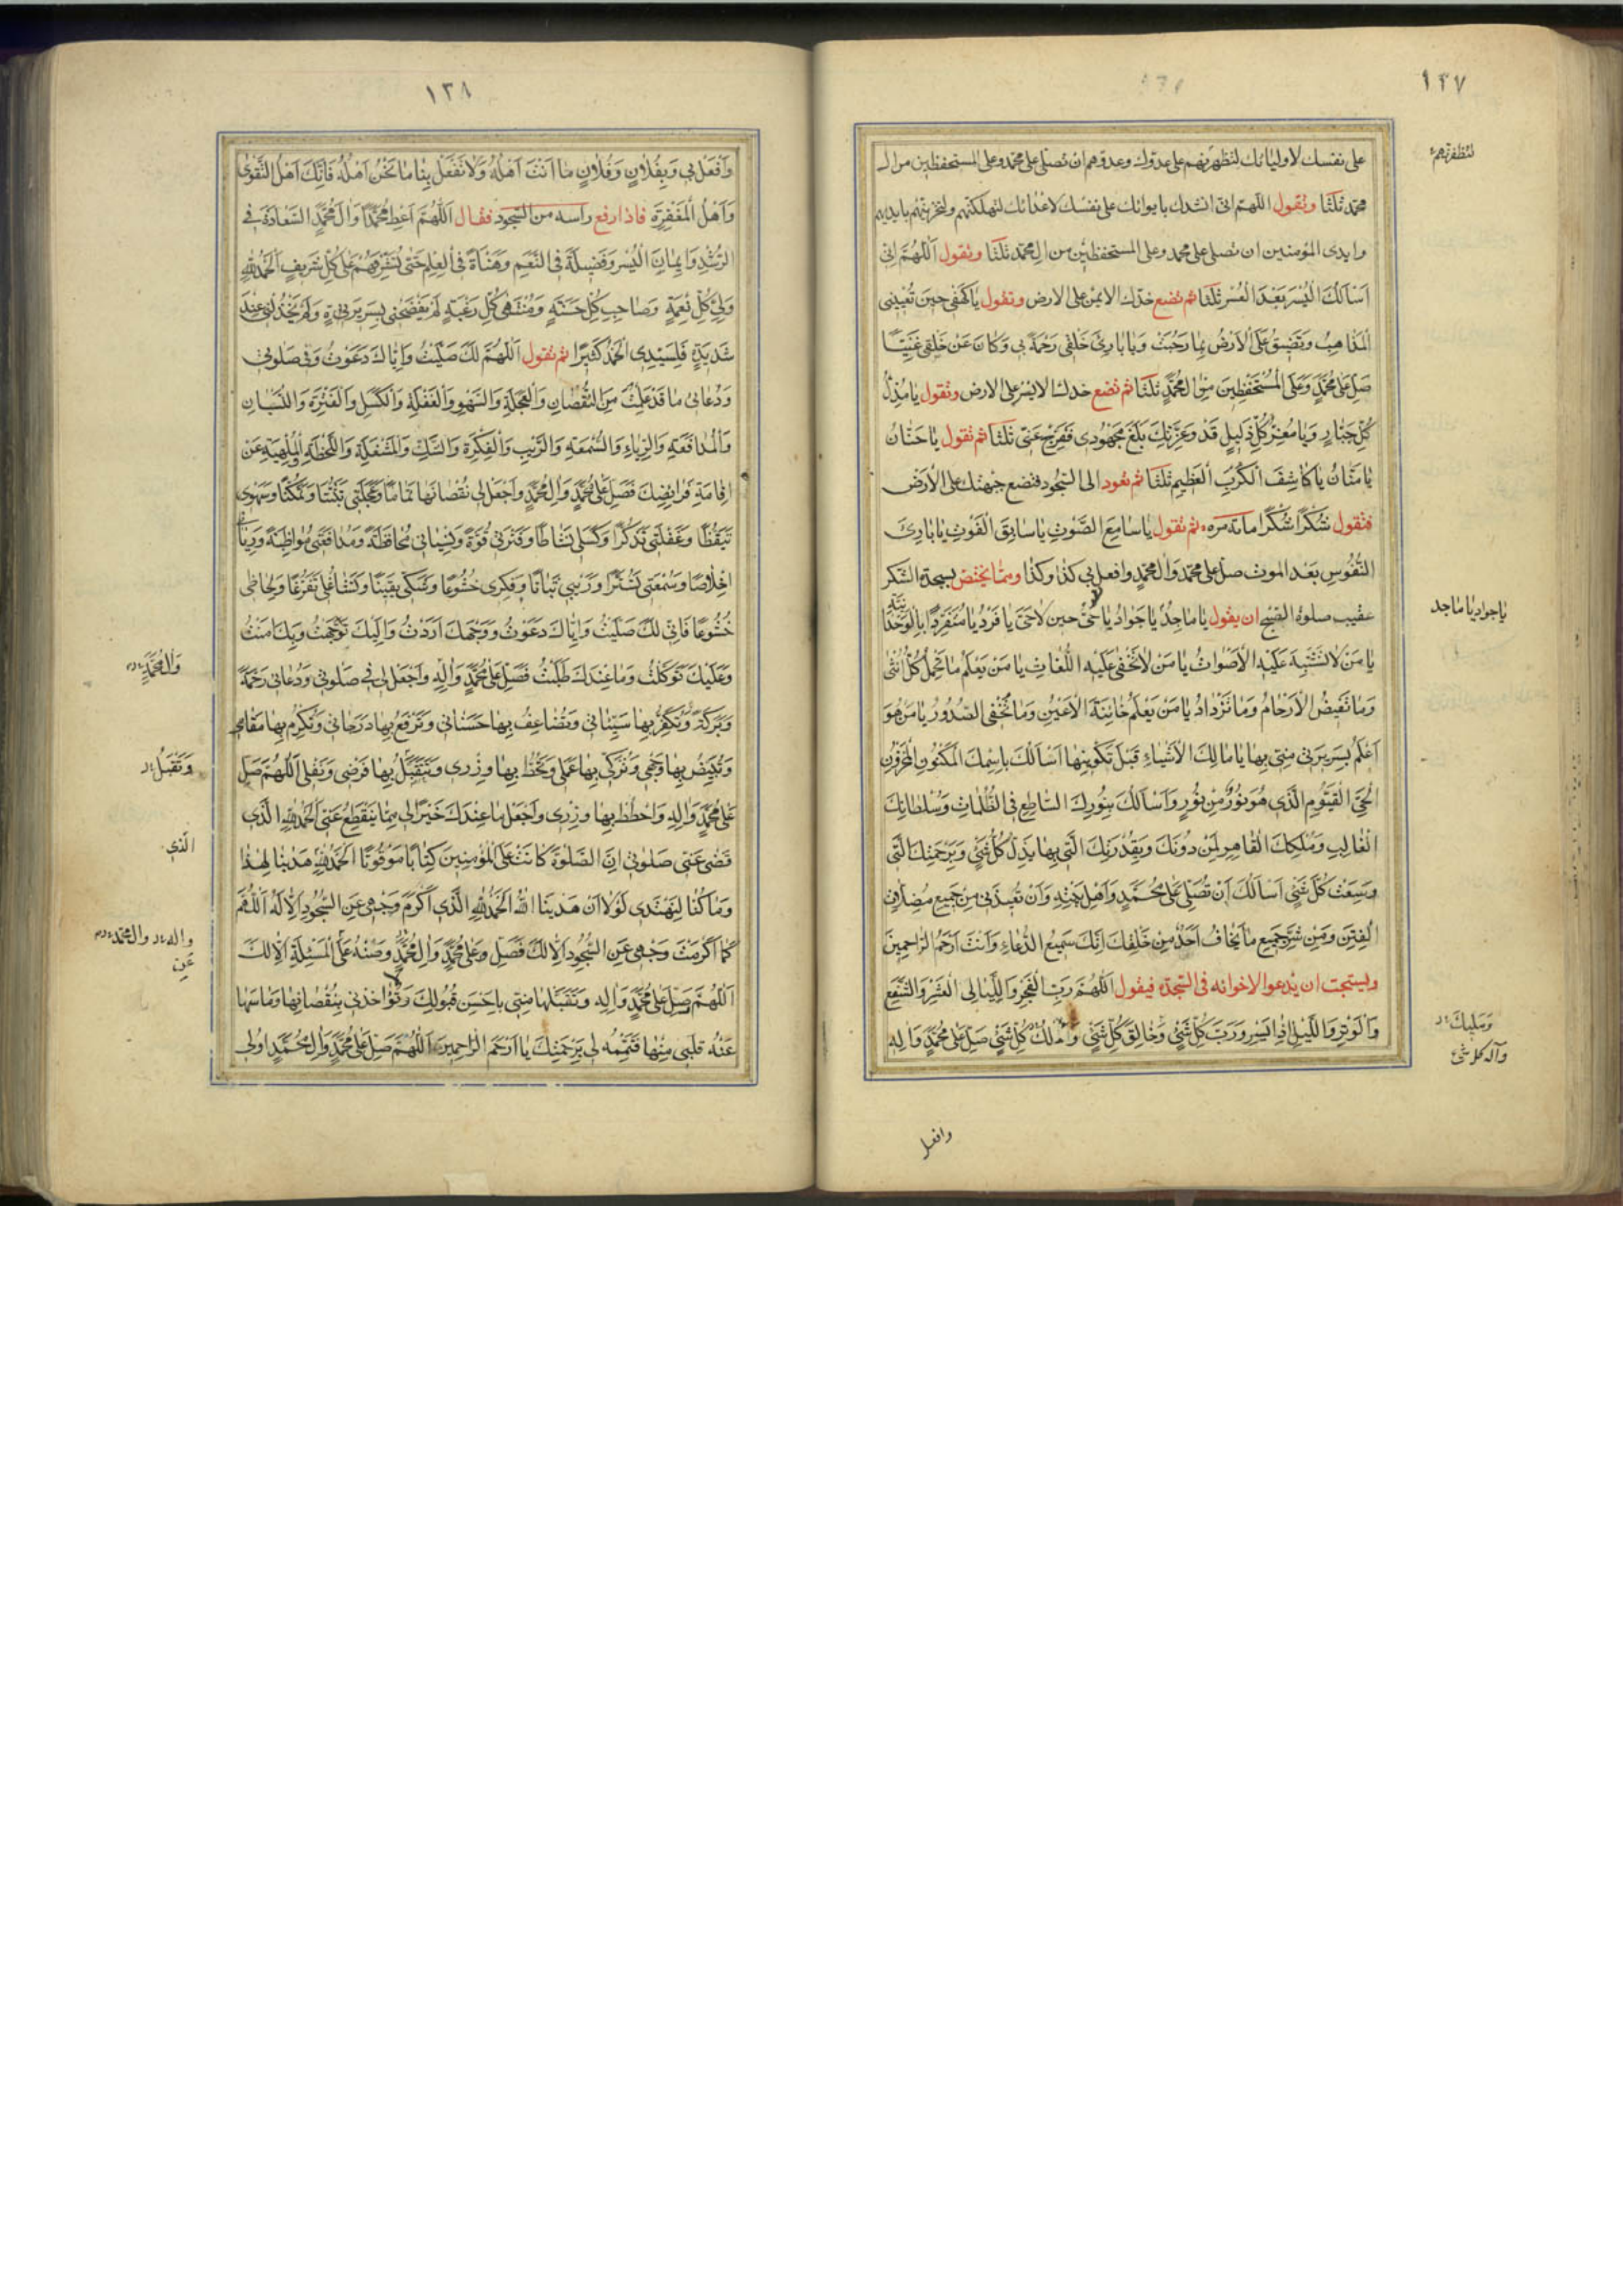 ١٣٧
على نفسك لاوليائك لتظهرنهم على عدوك وعدوهم ان تصلى على محمد وعلى المستحفظين من ال
لتظفرنهم
محمد ثلثا وتقول اللهم انى انشدك بايوائك على نفسك لاعدائك لتهلكنهم ولتخزينهم بايديهم
وايدى المؤمنين ان تصلى على محمد وعلى المستحفظين من ال محمد ثلثا وتقول اللهم انى
اَسْاَلُكَ الْيُسْرَ بَعْدَ الْعُسْرِ ثلثا ثم تضع خدك الايمن على الارض وتقول يا كَهْفى حينَ تُعْيينى
الْمَذاهِبُ وَتَضيقُ عَلَىَّ الْاَرْضُ بِما رَحُبَتْ وَيا بارِئَ خَلْقى رَحْمَةً بى وَكانَ عَنْ خَلْقى غَنِيّاً
صَلِّ عَلى مُحَمَّدٍ وَعَلَى الْمُسْتَحْفَظِينَ مِنْ الِ مُحَمَّدٍ ثلثا ثم تضع خدك الايسر على الارض وتقول يا مُذِلَّ
كُلِّ جَبّارٍ وَيا مُعِزَّ كُلِّ ذَليلٍ قَدْ وَعِزَّتِكَ بَلَغَ مَجْهُودى فَفَرِّجْ عَنّى ثلثا ثم تقول يا حَنّانُ
يا مَنّانُ يا كاشِفَ الْكُرَبِ الْعَظيمِ ثلثا ثم تعود الى السجود فتضع جبهتك على الارض
فتقول شُكْراً شُكْراً مائة مره ثم تقول يا سامِعَ الصَّوْتِ يا سابِقَ الْفَوْتِ يا بارِئَ
النُّفُوسِ بَعْدَ الموت صل على محمد وال محمد وافعل بى كذا وكذا ومما يختص بسجدة الشكر
عقيب صلوة الصبح ان يقول يا ماجِدُ يا جَوادُ يا حَىُّ حين لا حَىَّ يا فَرْدُ يا مُنْفَرِداً بِالْوَحْدانِيَّةِ
يا جواد يا ماجد
يا مَنْ لا تَشْتَبِهُ عَلَيْهِ الْاَصْواتُ يا مَنْ لا تَخْفى عَلَيْهِ اللُّغاتُ يا مَنْ يَعْلَمُ ما تَحْمِلُ كُلُّ اُنْثى
وَما تَغيضُ الْاَرْحامُ وَما تَزْدادُ يا مَنْ يَعْلَمُ خائِنَةَ الْاَعْيُنِ وَما تُخْفِى الصُّدُورُ يا مَنْ هُوَ
اَعْلَمُ بِسَريرَتى مِنّى بِها يا مالِكَ الْاَشْياءِ قَبْلَ تَكْوينِها اَسْاَلُكَ بِاسْمِكَ الْمَكْنُونِ الْمَخْزُونِ
الْحَىِّ الْقَيُّومِ الَّذى هُوَ نُورٌ مِنْ نُورٍ وَاَسْاَلُكَ بِنُورِكَ السّاطِعِ فِى الظُّلُماتِ وَسُلْطانِكَ
الْغالِبِ وَمُلْكِكَ الْقاهِرِ لِمَنْ دُونَكَ وَبِقُدْرَتِكَ الَّتى بِها يَذِلُّ كُلُّ شَىْءٍ وَبِرَحْمَتِكَ الَّتى
وَسِعَتْ كُلَّ شَىْءٍ اَسْاَلُكَ اَنْ تُصَلِّىَ عَلى مُحَمَّدٍ وَاَهْلِ بَيْتِهِ وَاَنْ تُعيذَنى مِنْ جَميعِ مُضِلّاتِ
الْفِتَنِ وَمِنْ شَرِّ جَميعِ ما يَخافُ اَحَدٌ مِنْ خَلْقِكَ اِنَّكَ سَميعُ الدُّعاءِ وَاَنْتَ اَرْحَمُ الرّاحِمينَ
ويستحب ان يدعوا لاخوانه فى السجدة فيقول اَللّهُمَّ رَبَّ الْفَجْرِ وَاللَّيالِى الْعَشْرِ وَالشَّفْعِ
وَالْوَتْرِ وَاللَّيْلِ اِذا يَسْرِ وَرَبَّ كُلِّ شَىْءٍ وَخالِقَ كُلِّ شَىْءٍ وَمالِكَ كُلِّ شَىْءٍ صَلِّ عَلى مُحَمَّدٍ وَالِهِ
وَمَليكَ
وآله كل شئ
وافعل
١٣٨
وَافْعَلْ بى وَبِفُلانٍ وَفُلانٍ ما اَنْتَ اَهْلُهُ وَلا تَفْعَلْ بِنا ما نَحْنُ اَهْلُهُ فَاِنَّكَ اَهْلُ التَّقْوى
وَاَهْلُ الْمَغْفِرَةِ فاذا رفع راسه من السجود فقال اَللّهُمَّ اَعْطِ مُحَمَّداً وَالَ مُحَمَّدٍ السَّعادَةَ فِى
الرُّشْدِ وَايمانَ الْيُسْرِ وَفَضيلَةً فِى النِّعَمِ وَهَناءَةً فِى الْعِلْمِ حَتّى تُشَرِّفَهُمْ عَلى كُلِّ شَريفٍ اَلْحَمْدُ لِلّهِ
وَلِىِّ كُلِّ نِعْمَةٍ وَصاحِبِ كُلِّ حَسَنَةٍ وَمُنْتَهى كُلِّ رَغْبَةٍ لَمْ يَفْضَحْنى بِسَريرَةٍ وَلَمْ يَخْذُلْنى عِنْدَ
شَديدَةٍ فَلِسَيِّدِى الْحَمْدُ كَثيراً ثم تقول اَللّهُمَّ لَكَ صَلَّيْتُ وَاِيّاكَ دَعَوْتُ وَفى صَلوتى
وَدُعائى ما قَدْ عَلِمْتَ مِنَ النُّقْصانِ وَالْعَجَلَةِ وَالسَّهْوِ وَالْغَفْلَةِ وَالْكَسَلِ وَالْفَتْرَةِ وَالنِّسْيانِ
وَالْمُدافَعَةِ وَالرِّياءِ وَالسُّمْعَةِ وَالرَّيْبِ وَالْفِكْرَةِ وَالشَّكِّ وَالْمَشْغَلَةِ وَاللَّحْظَةِ الْمُلْهِيَةِ عَنْ
اِقامَةِ فَرائِضِكَ فَصَلِّ عَلى مُحَمَّدٍ وَالِ مُحَمَّدٍ وَاجْعَلْ لى نُقْصانَها تَماماً وَعَجَلَتى تَثَبُّتاً وَتَمَكُّناً وَسَهْوى
تَيَقُّظاً وَغَفْلَتى تَذَكُّراً وَكَسَلى نَشاطاً وَفَتْرَتى قُوَّةً وَنِسْيانى مُحافَظَةً وَمُدافَعَتى مُواظَبَةً وَرِيائى
اِخْلاصاً وَسُمْعَتى تَسَتُّراً وَرَيْبى ثَباتاً وَفِكْرى خُشُوعاً وَشَكّى يَقيناً وَتَشاغُلى تَفَرُّغاً وَلِحاظى
خُشُوعاً فَاِنّى لَكَ صَلَّيْتُ وَاِيّاكَ دَعَوْتُ وَوَجْهَكَ اَرَدْتُ وَاِلَيْكَ تَوَجَّهْتُ وَبِكَ امَنْتُ
وَعَلَيْكَ تَوَكَّلْتُ وَما عِنْدَكَ طَلَبْتُ فَصَلِّ عَلى مُحَمَّدٍ وَالِهِ وَاجْعَلْ لى فى صَلوتى وَدُعائى رَحْمَةً
وَالِ مُحَمَّدٍ
وَبَرَكَةً وَتُكَفِّرُ بِها سَيِّئاتى وَتُضاعِفُ بِها حَسَناتى وَتَرْفَعُ بِها دَرَجاتى وَتُكْرِمُ بِها مَقامى
وَتُبَيِّضُ بِها وَجْهى وَتُزَكّى بِها عَمَلى وَتَحُطُّ بِها وِزْرى وَتَتَقَبَّلُ بِها فَرْضى وَنَفْلى اَللّهُمَّ صَلِّ
وَتَقْبَلُ
عَلى مُحَمَّدٍ وَالِهِ وَاحْطُطْ بِها وِزْرى وَاجْعَلْ ما عِنْدَكَ خَيْراً لى مِمّا يَنْقَطِعُ عَنّى اَلْحَمْدُ لِلّهِ الَّذى
الَّذى
قَضى عَنّى صَلوتى اِنَّ الصَّلوةَ كانَتْ عَلَى الْمُؤْمِنينَ كِتاباً مَوْقُوتاً اَلْحَمْدُ لِلّهِ هَدينا لِهذا
وَما كُنّا لِنَهْتَدِىَ لَوْلا اَنْ هَدينَا اللّهُ اَلْحَمْدُ لِلّهِ الَّذى اَكْرَمَ وَجْهى عَنِ السُّجُودِ اِلّا لَهُ اَللّهُمَّ
كَما اَكْرَمْتَ وَجْهى عَنِ السُّجُودِ اِلّا لَكَ فَصَلِّ وعَلى مُحَمَّدٍ وَالِ مُحَمَّدٍ وَصُنْهُ عَلَى الْمَسْئَلَةِ اِلّا لَكَ
واله وال محمد
عَنِ
اَللّهُمَّ صَلِّ عَلى مُحَمَّدٍ وَالِهِ وَتَقَبَّلْها مِنّى بِاَحْسَنِ قَبُولِكَ وَلا تُؤاخِذْنى بِنُقْصانِها وَما سَها
عَنْهُ قَلْبى مِنْها فَتَمِّمْهُ لى بِرَحْمَتِكَ يا اَرْحَمَ الرّاحِمينَ اَللّهُمَّ صَلِّ عَلى مُحَمَّدٍ وَالِ مُحَمَّدٍ اُولِى